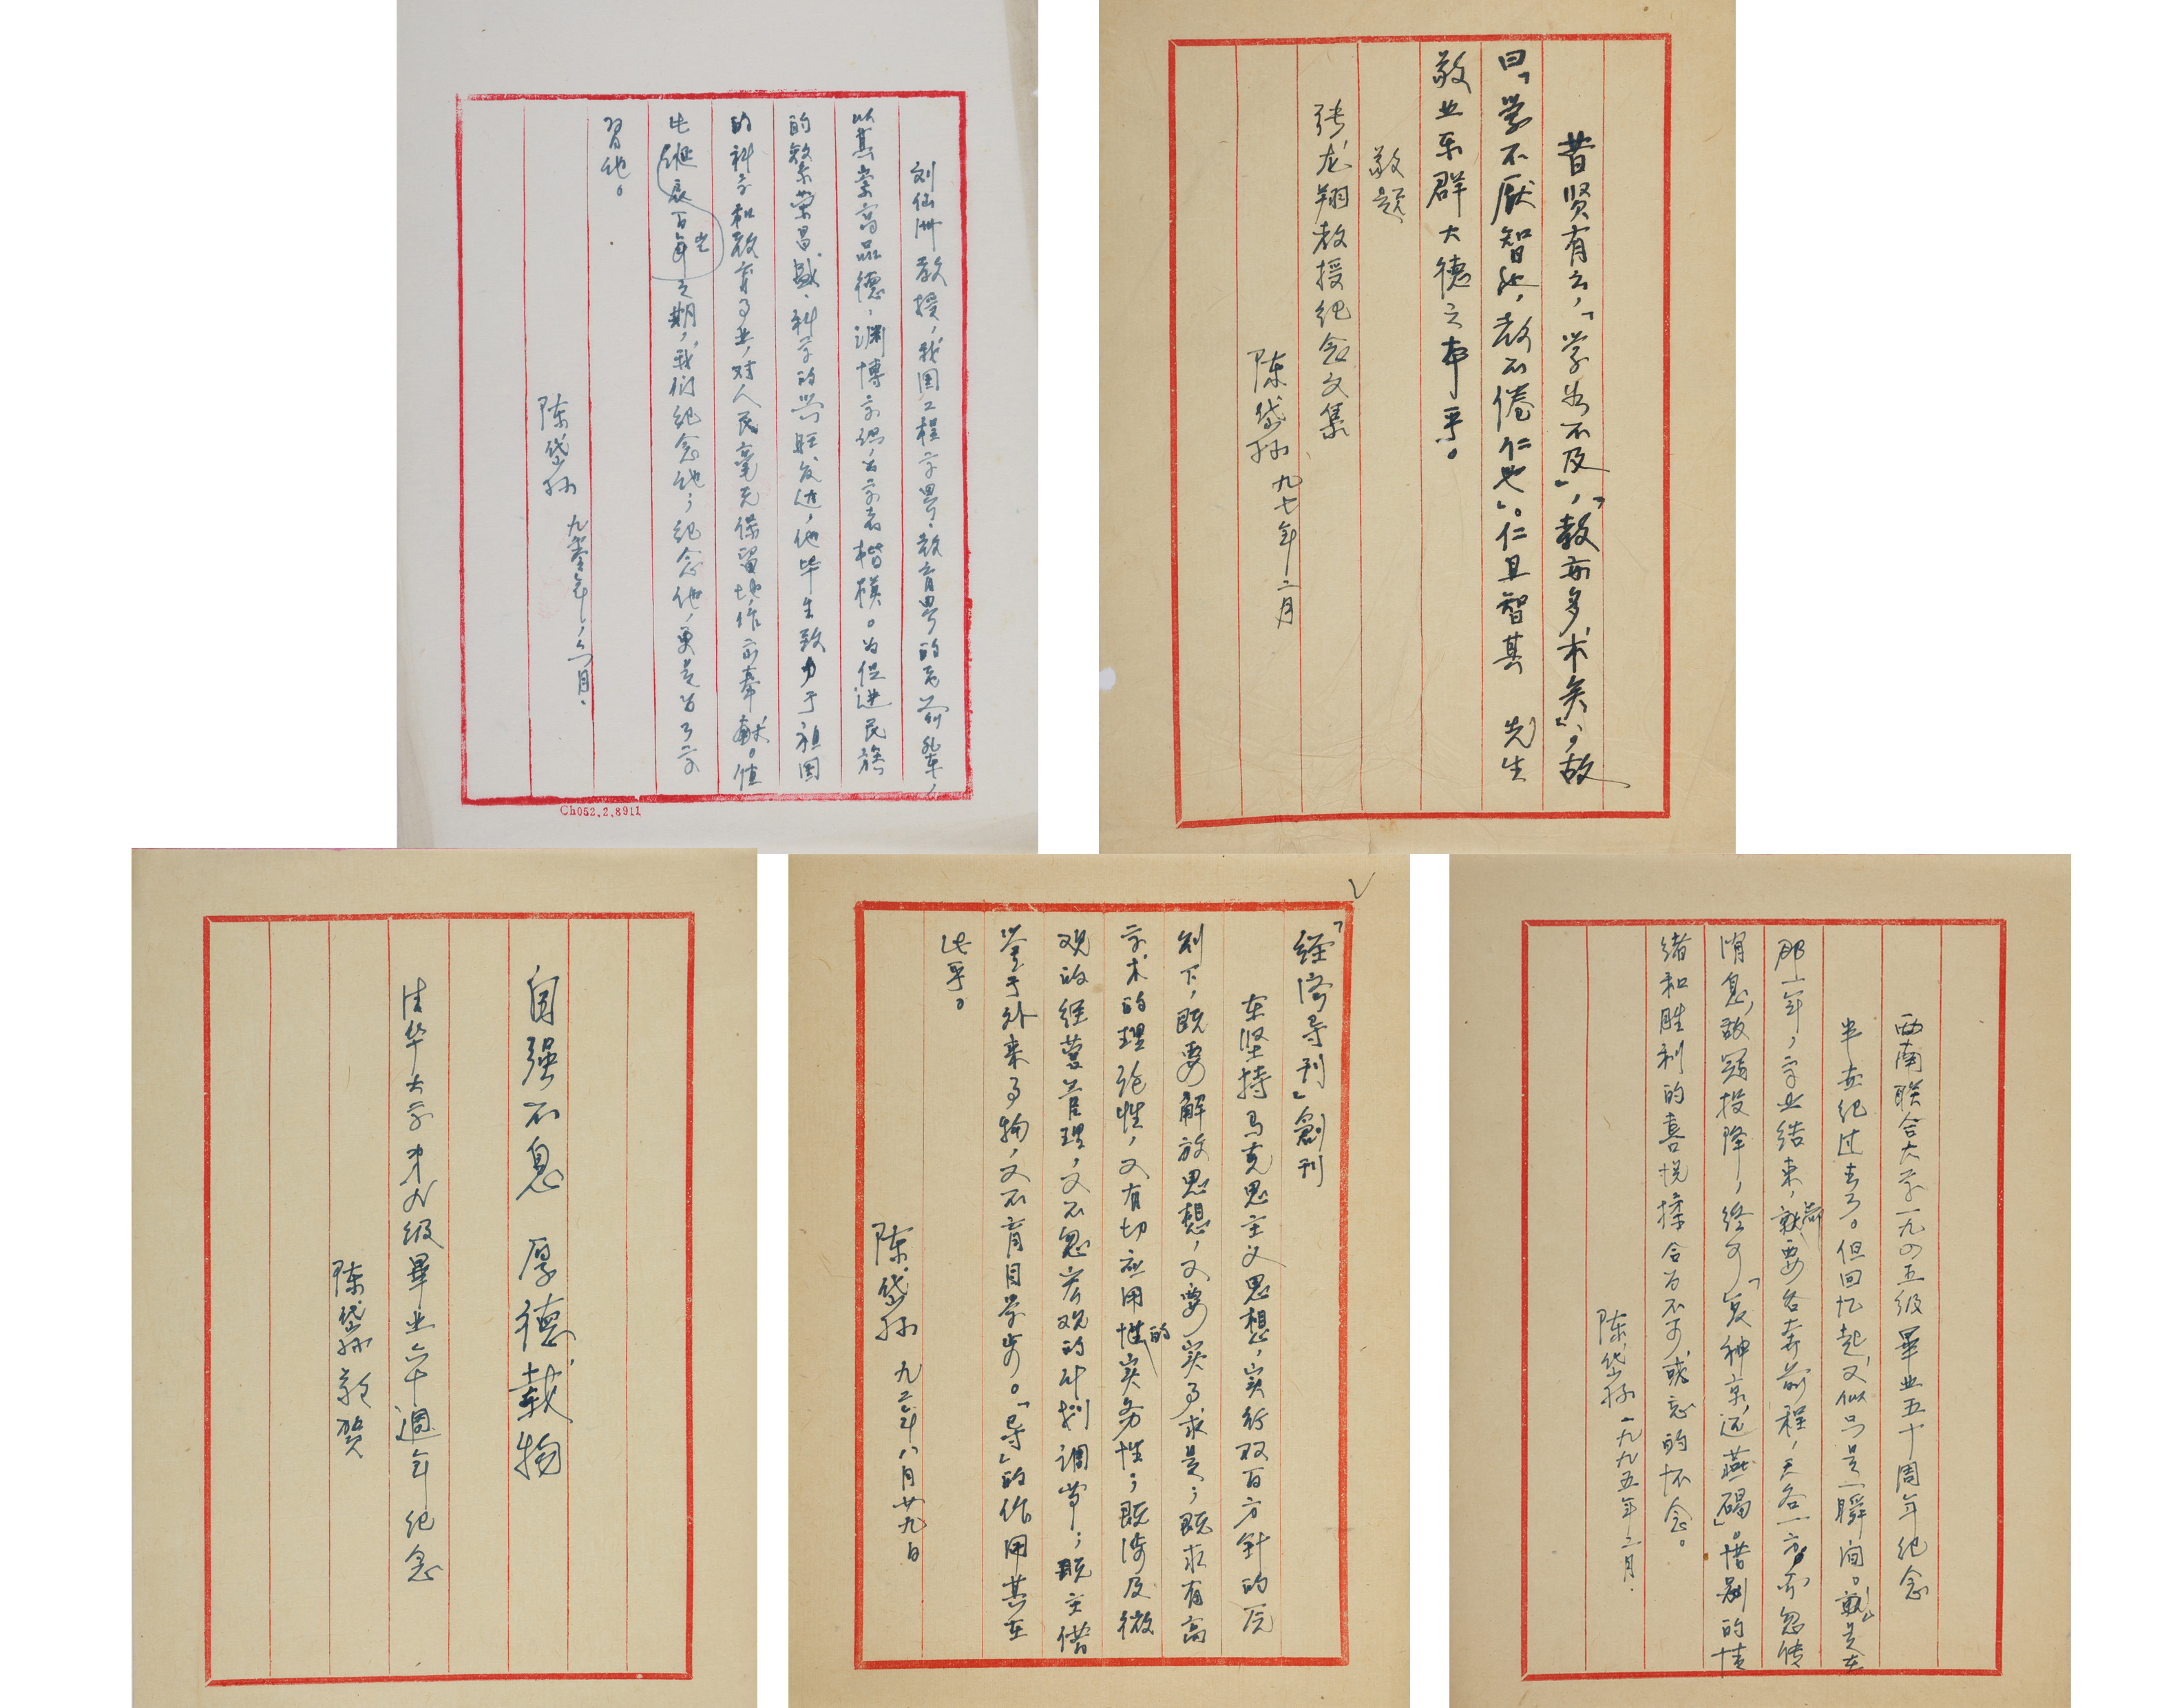 刘仙洲教授，我国工程学界、教育界的老前辈，
以其崇高品德，渊博学识，为学者楷模。为促进民族
的繁荣昌盛、科学的兴旺发达，他毕生致力于祖国
的科学和教育事业，对人民毫无保留地作出奉献。值
此诞辰百年之期，我们纪念他；纪念他，更是为了学
习他。
陈岱孙
九零年，六月．
Ch052.2.8911
昔贤有云，「学如不及」，「教亦多术矣」，故
曰「学不厌智也，教不倦仁也」。仁且智其 先生
敬业乐群大德之本乎。
敬题
张龙翔教授纪念文集
陈岱孙 九七年二月
自强不息 厚德载物
清华大学第八级毕业六十週年纪念
陈岱孙敬贺
「经济导刊」创刊
在坚持马克思主义思想，实行双百方针的原
则下，既要解放思想，又要实事求是；既求有高
学术的理论性，又有切应用性的实务性；既涉及微
观的经营管理，又不忽宏观的计划调节；既主借
鉴于外来事物，又不盲目学步。「导」的作用其在
此乎。
陈岱孙 九三年八月廿九日
西南联合大学一九四五级毕业五十周年纪念
半世纪过去了。但回忆起又似只是一瞬间。就是在
那一年，学业结束，就要各奔前程，天各一方，而忽传
消息，敌寇投降，终可「复神京，还燕碣」。惜别的情
绪和胜利的喜悦揉合为不可或忘的怀念。
陈岱孙 一九九五年二月．